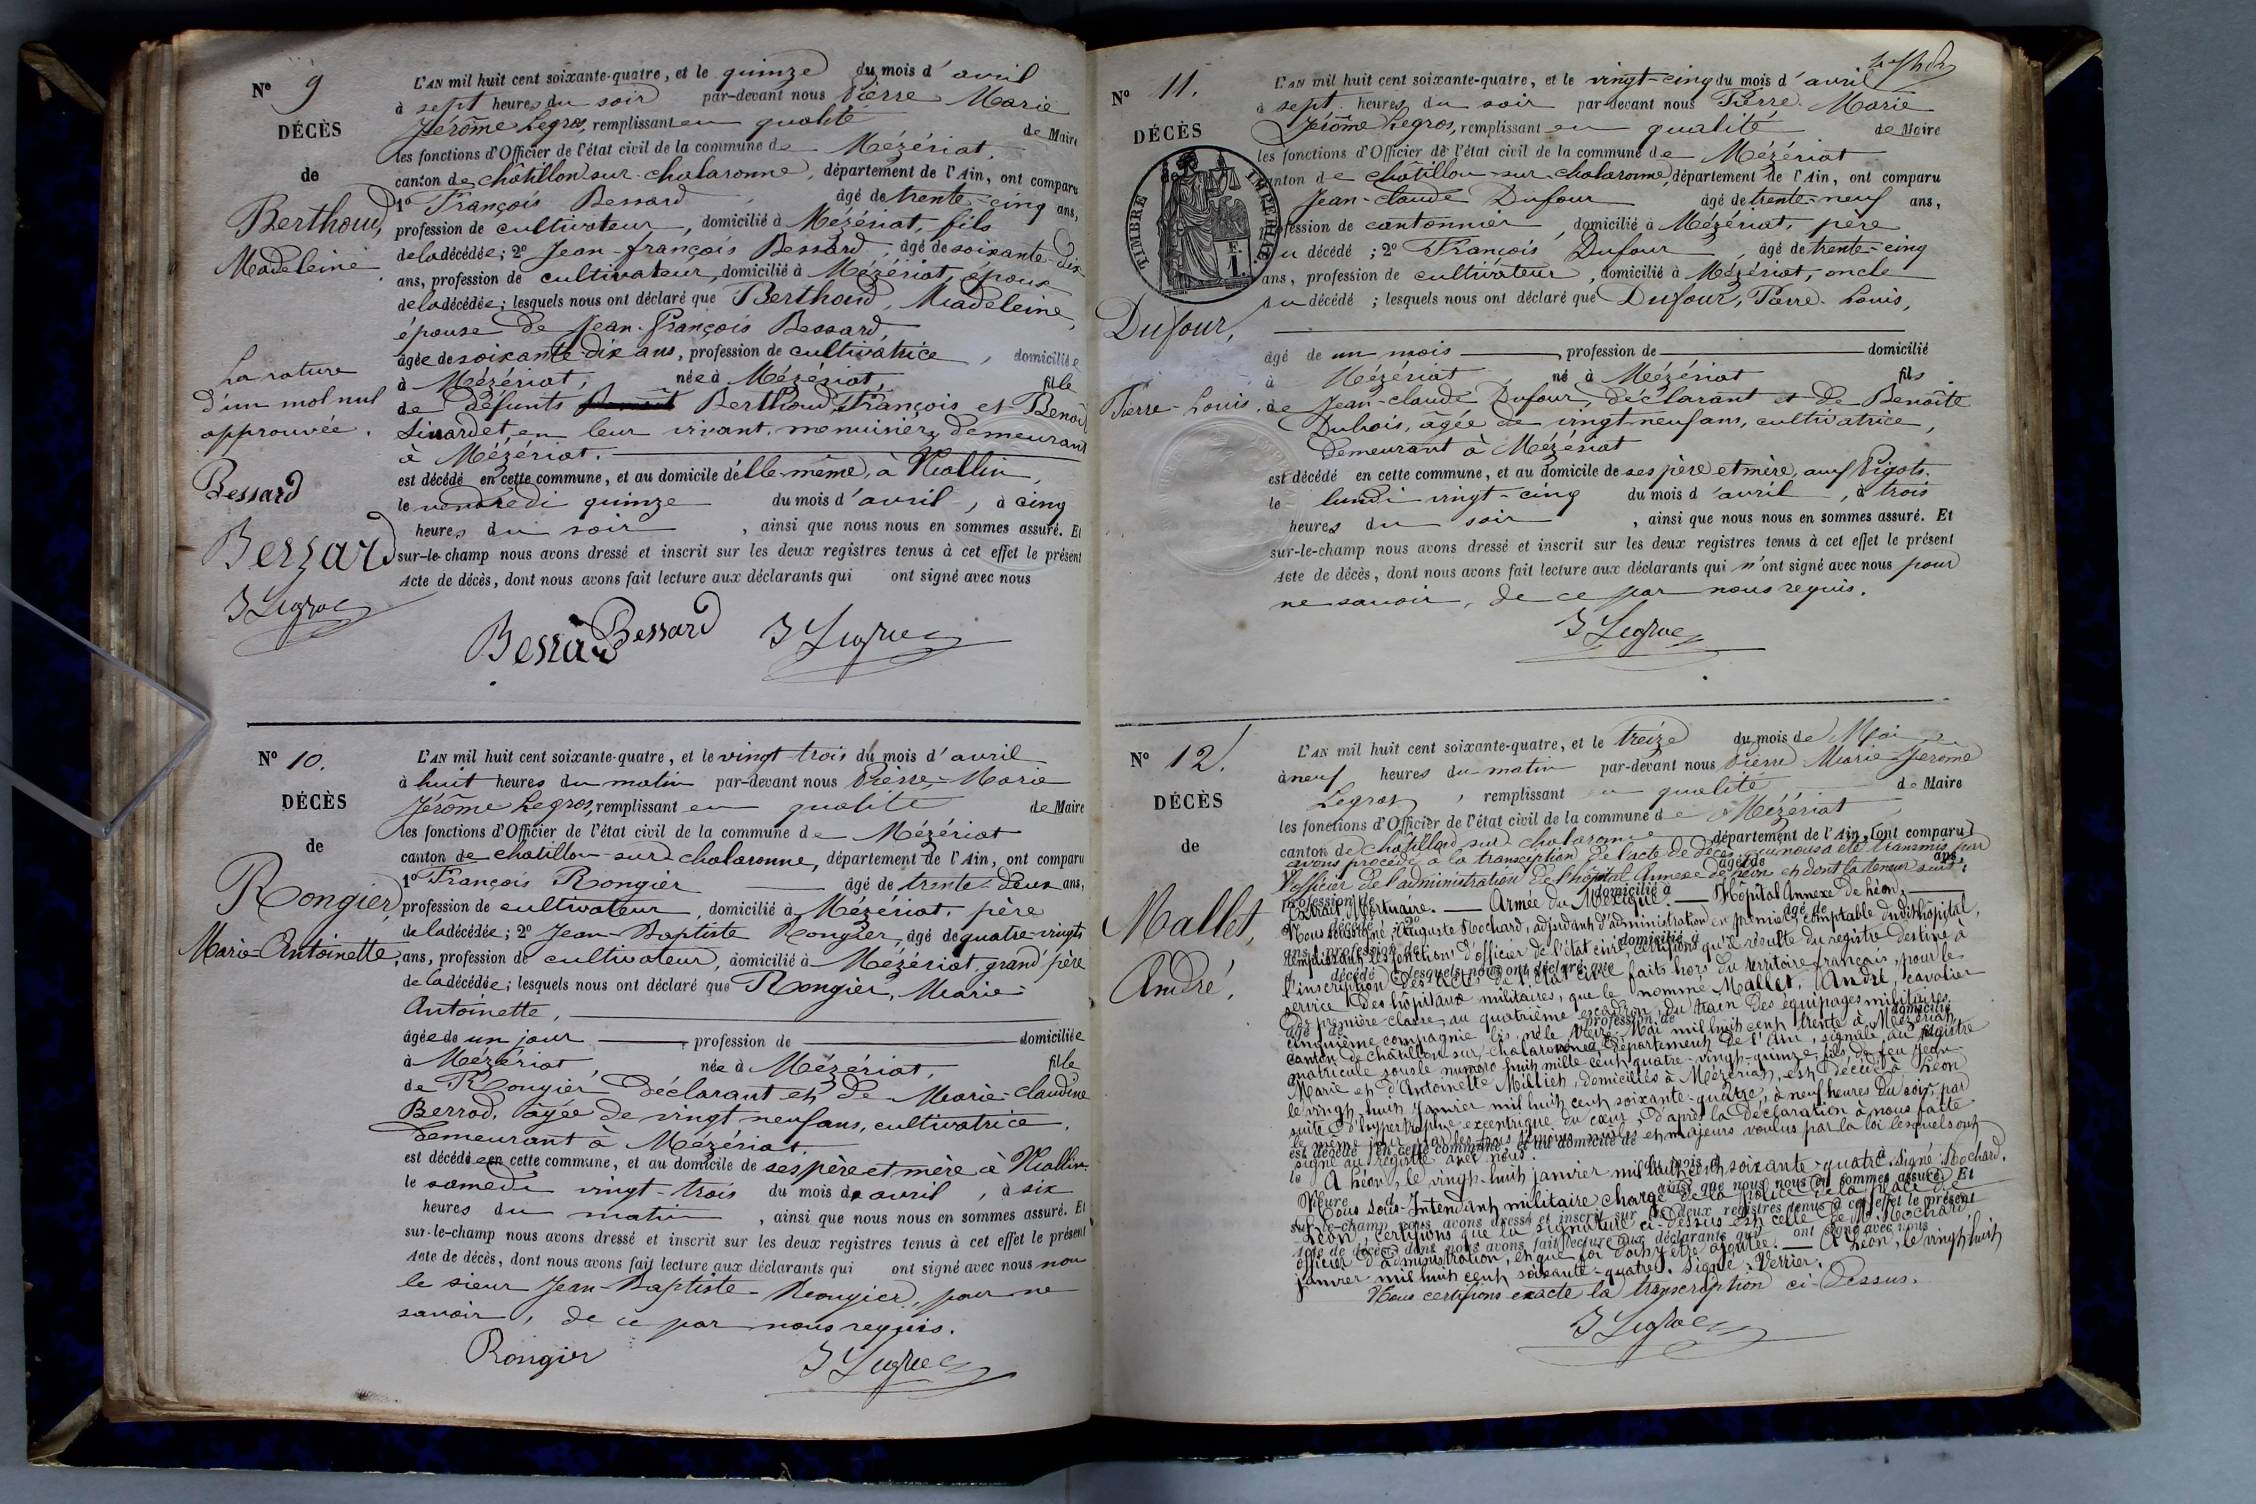 N° 9
DÉCÈS
de
Berthoud,
Madeleine
La rature
d'un mot nul
approuvée.
Bessard
Berzard
J Legros
L'AN mil huit cent soixante-quatre, et le quinze du mois d'avril
à sept heures du soir par-devant nous Pierre Marie
Jérôme Legros, remplissant en qualité de Maire
les fonctions d'Officier de l'état civil de la commune de Mézériat,
canton de châtillon-sur-chalaronne, département de l'Ain, ont comparu
1° François Bessard âgé de trente-cinq ans,
profession de cultivateur, domicilié à Mézériat, fils
de la décédée; 2° Jean-françois Bessard, âgé de soixante-dix
ans, profession de cultivateur, domicilié à Mézériat, époux
de la décédée; lesquels nous ont déclaré que Berthoud, Madeleine,
épouse de Jean-françois Bessard,
âgée de soixante-dix ans, profession de cultivatrice, domiciliée
à Mézériat, née à Mézériat, fille
de défunts Berthoud, François et Benoîte
Sinardet, en leur vivant menuisiers demeurant
à Mézériat.
est décédé en cette commune, et au domicile d'elle-même, à Niallin,
le vendredi quinze du mois d'avril, à cinq
heures du soir, ainsi que nous nous en sommes assuré. Et
sur-le-champ nous avons dressé et inscrit sur les deux registres tenus à cet effet le présent
Acte de décès, dont nous avons fait lecture aux déclarants qui ont signé avec nous
Bessard Bessard J Legros
N° 10.
DÉCÈS
de
Rongier,
Marie-Antoinette,
L'AN mil huit cent soixante-quatre, et le vingt trois du mois d'avril
à huit heures du matin par-devant nous Pierre-Marie
Jérôme Legros, remplissant en qualité de Maire
les fonctions d'Officier de l'état civil de la commune de Mézériat
canton de chatillon-sur-chalaronne, département de l'Ain, ont comparu
1° François Rongier âgé de trente-deux ans,
profession de cultivateur, domicilié à Mézériat, père
de la décédée; 2° Jean-Baptiste Rongier, âgé de quatre-vingts
ans, profession de cultivateur, domicilié à Mézériat, grand'père
de la décédée; lesquels nous ont déclaré que Rongier, Marie-
Antoinette,
âgée de un jour profession de domiciliée
à Mézériat, née à Mézériat, fille
de Rongier déclarant et de Marie-claudine
Berrod, âgée de vingt neuf ans, cultivatrice,
demeurant à Mézériat.
est décédée en cette commune, et au domicile de ses père et mère à Niallin.
le samedi vingt-trois du mois de avril, à six
heures du matin, ainsi que nous nous en sommes assuré. Et
sur-le-champ nous avons dressé et inscrit sur les deux registres tenus à cet effet le présent
Acte de décès, dont nous avons fait lecture aux déclarants qui ont signé avec nous non
le sieur Jean-Baptiste-Rongier, pour ne
savoir, de ce par nous requis.
Rongier J Legros
N° 11.
DÉCÈS
de
TIMBRE IMPÉRIAL
F.
1.
Dufour,
Pierre-Louis.
L'AN mil huit cent soixante-quatre, et le vingt-cinq du mois d'avril
à sept heures du soir par-devant nous Pierre Marie
Jérôme Legros, remplissant en qualité de Maire
les fonctions d'Officier de l'état civil de la commune de Mézériat
canton de châtillon-sur-chalaronne, département de l'Ain, ont comparu
Jean-claude Dufour âgé de trente-neuf ans,
profession de cantonnier, domicilié à Mézériat, père
du décédé; 2° François Dufour, âgé de trente-cinq
ans, profession de cultivateur, domicilié à Mézériat, oncle
du décédé; lesquels nous ont déclaré que Dufour, Pierre-Louis,
âgé de un mois, profession de domicilié
à Mézériat, né à Mézériat fils
de Jean-claude Dufour, déclarant et de Benoîte
Dubois, âgée de vingt-neuf ans, cultivatrice,
demeurant à Mézériat
est décédé en cette commune, et au domicile de ses père et mère, aux Pigots.
le lundi vingt-cinq du mois d'avril, à trois
heures du soir, ainsi que nous nous en sommes assuré. Et
sur-le-champ nous avons dressé et inscrit sur les deux registres tenus à cet effet le présent
Acte de décès, dont nous avons fait lecture aux déclarants qui n'ont signé avec nous pour
ne savoir, de ce par nous requis.
J Legros
N° 12.
DÉCÈS
de
Mallet,
André,
L'AN mil huit cent soixante-quatre, et le treize du mois de Mai
à neuf heures du matin par-devant nous Pierre Marie-Jérôme
Legros, remplissant en qualité de Maire
les fonctions d'Officier de l'état civil de la commune de Mézériat
canton de châtillon sur chalaronne département de l'Ain, (ont comparu)
avons procédé à la transcription de l'acte de décès qui nous a été transmis par
l'officier de l'administration de l'hôpital Annexe de Léon et dont la teneur suit:
Extrait Mortuaire. — Armée du Mexique. — Hôpital Annexe de Léon,
Nous soussigné Auguste Rochard, adjudant d'administration en premier, comptable dudit hôpital,
remplissant les fonctions d'officier de l'état civil, certifions qu'il résulte du registre destiné à
l'inscription des actes de l'état civil faits hors du territoire français, pour le
service des hôpitaux militaires, que le nommé Mallet, André, cavalier
de première classe, au quatrième escadron du train des équipages militaires,
cinquième compagnie bis, né le treize Mai mil huit cent trente à Mézériat,
canton de Châtillon sur chalaronne, département de l'Ain, signalé au registre
matricule sous le numéro huit mille cent quatre-vingt-quinze, fils de feu Jean-
Marie et d'Antoinette Milliet, domiciliés à Mézériat, est décédé à Léon
le vingt-huit Janvier mil huit cent soixante-quatre, à neuf heures du soir, par
suite d'hypertrophie excentrique du cœur, d'après la déclaration à nous faite
le même jour par les trois témoins mâles et majeurs voulus par la loi lesquels ont
signé au registre avec nous
A Léon, le vingt-huit janvier mil huit cent soixante-quatre. Signé: Rochard.
Nous sous-Intendant militaire chargé de la police de la place de
Léon, certifions que la signature ci-dessus est celle de M. Rochard
officier d'administration, et que foi doit y être ajoutée. — A Léon, le vingt-huit
janvier mil huit cent soixante-quatre. Signé: Verrier.
Nous certifions exacte la transcription ci-dessus.
J Legros